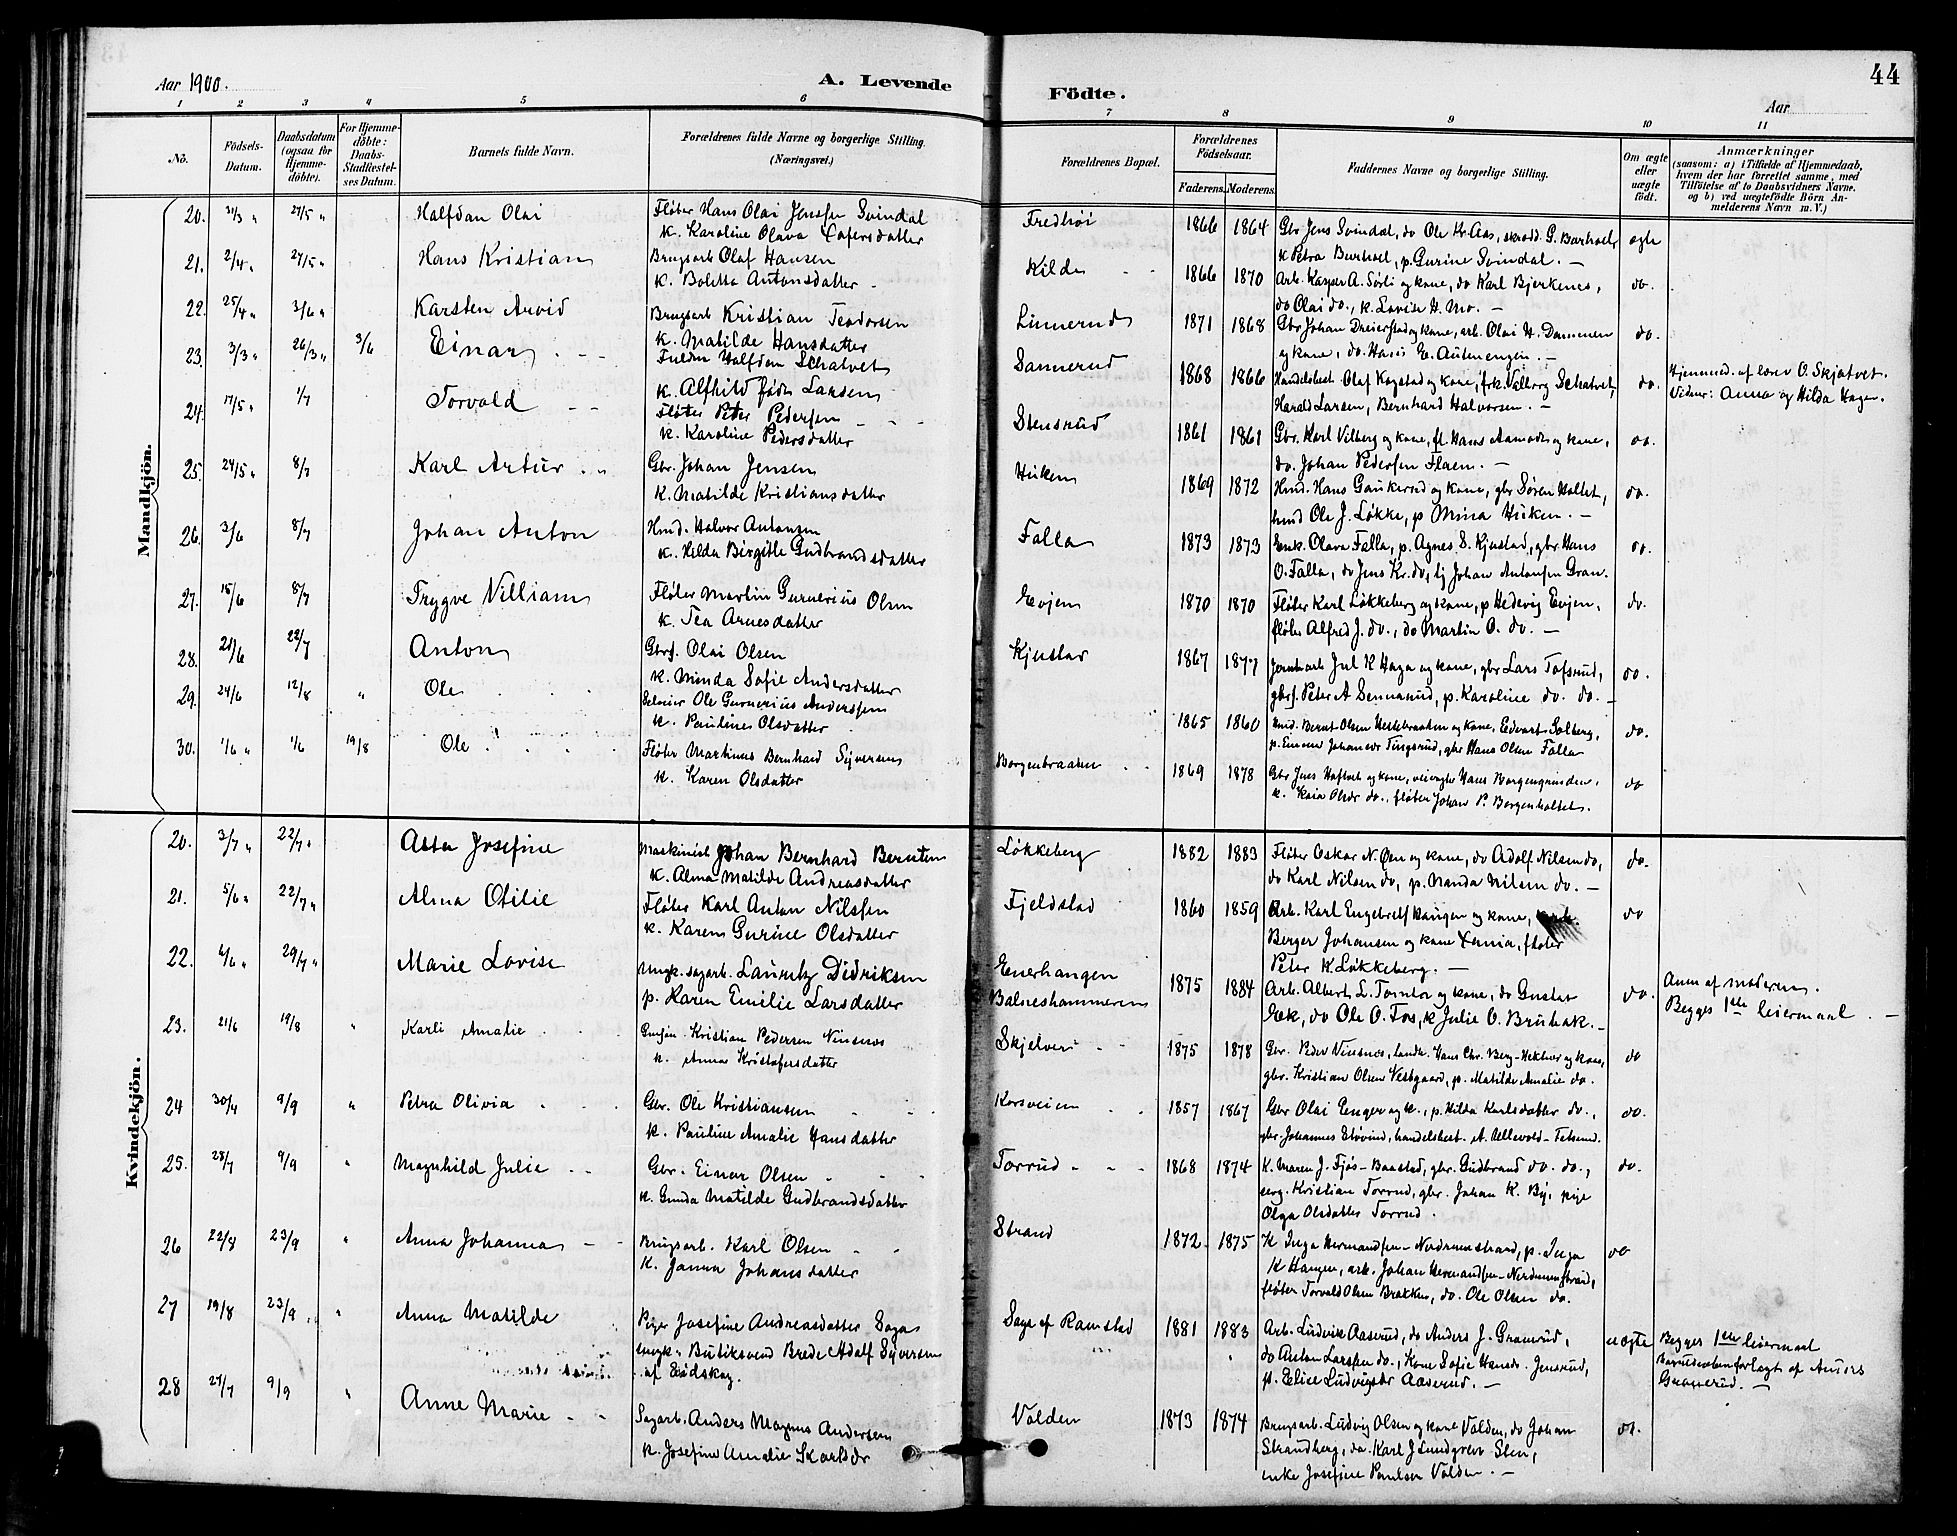 44
Aar 1900.
A. Levende Födte.
Aar
1 2 3 4 5 6 7 8 9 10 11
No.
Födsels-Datum.
Daabsdatum (ogsaa for Hjemme-döbte).
For Hjemme-döbte: Daabs-Stadfæstel-ses Datum.
Barnets fulde Navn.
Forældrenes fulde Navne og borgerlige Stilling. (Næringsvei.)
Forældrenes Bopæl.
Forældrenes Födselsaar.
Faderens. Moderens.
Faddernes Navne og borgerlige Stilling.
Om ægte eller uægte födt.
Anmærkninger
(saasom: a) i Tilfælde af Hjemmedaab,
hvem der har forrettet samme, med
Tilföielse af to Daabsvidners Navne.
og b) ved uægtefödte Börn An-
melderens Navn m. V.)
Mandkjön.
20. 31/3 " 27/5 " Halfdan Olai
Fløter Hans Olai Jenssen Svindal
k. Karoline Olava
Fredhøi 1866 1864
Gbr Jens Svindal, do Ole Kr. Aas, skredd. G. Barholt,
k Petra Barholt, p. Gurine Svindal. —
ægte
21. 2/4 " 27/5 " Hans Kristian
Brugsarb Olaf Hansen
k. Boletta Antonsdatter
Kilde 1866 1870
Arb. Kasper A. Sørli og kone, do Karl Bjerkenes,
do Olai do., k. Lovise H. Mo. —
do.
22. 25/4 " 3/6 " Karsten Arvid
Brugsarb Kristian Teodorsen
k. Matilde Hansdatter
Linnerud 1871 1868
Gbr Johan Dreierstad og kone, arb. Olai H. Dammen
og kone, do. Hans E. —
do.
23. 3/3 " 26/3 " 3/6 Einar
Halfdan Schatvet
k. Alfhild født Larsen
Sannerud 1868 1866
Handelsbest. Olaf Kogstad og kone, frk. Valborg Schatvet,
Harald Larsen, Bernhard Halvorsen. —
do.
Hjemmed. af lærer O. Skjatvet.
Vidner: Anna og Hilda Hagen.
24. 17/5 " 1/7 Torvald
Fløter Peter Pedersen
k. Karoline Pedersdatter
Stensrud 1861 1861
Gbr. Karl Vilberg og kone, fl. Hans Aamodt og kone,
do. Johan Pedersen Flaen. —
do.
25. 24/5 " 8/7 Karl Artur
Gbr. Johan Jensen
k. Matilde Kristiansdatter
Huken 1869 1872
Hmd. Hans Gaukerud og kone, gbr Søren Holtet,
hmd Ole J. Løkke, p Mina Huken. —
do.
26. 3/6 8/7 Johan Anton
Hmd. Halvor Antonsen
k. Hilda Birgitte Gudbrandsdatter
Falla 1873 1873
Enk. Olava Falla, p. Agnes S. Kjustad, gbr. Hans
O. Falla, do Jens Kr. do, Johan Antonsen Gran.
do.
27. 15/6 8/7 Trygve Villiam
Fløter Martin Gunerius Olsen
k. Tea Arnesdatter
Evjen 1870 1870
Fløter Karl Løkkeberg og kone, p Hedevig Evjen,
fløter Alfred J. do., do Martin O. do. —
do.
28. 21/6 22/7 Anton
Gbrs. Olai Olsen
k. Minda Sofie Andersdatter
Kjustad 1867 1877
Jernbarb Jul K Haga og kone, gbr Lars Tofsrud,
gbrs. Peter A Sennerud, p. Karoline do. do. —
do.
29. 24/6 12/8 " Ole
Ole Gunerius Anderssen
k. Pauline Olsdatter
1865 1860
Hmd. Bernt Olsen og kone, Edvart Solberg,
p. Emma Johansdr Tingsrud, gbr Hans Olsen Falla
do.
30. 1/6 " 1/6 19/8 Ole
Fløter Martinus Bernhard Syversen
k. Karen Olsdatter
Borgenbraaten 1869 1878
Gbr Jens Hoftvet og kone, veivogter Hans Borgengrinden,
k. Kaia Olsdr do., fløter Johan P. Borgenholtet.
do
Kvindekjön.
20. 3/7 " 22/7 " Asta Josefine
Maskinist Johan Bernhard Berntsen
k. Alma Matilde Andreasdatter
Løkkeberg 1882 1883
Fløter Oskar N. Øen og kone, do Adolf Nilsen do,
do Karl Nilsen do, p. Nanda Nilsen do. —
do.
21. 5/6 " 22/7 " Alma Otilie
Fløter Karl Anton Nilssen
k. Karen Gurine Olsdatter
Fjeldstad 1860 1859
Arb. Karl Engebretsf Haugen og kone,
Berger Johansen og kone Xenia, fløter
Peter K. Løkkeberg. —
do
22. 6/6 " 29/7 " Marie Lovise
Ungk. sagarb. Lauritz Didriksen
p. Karen Emilie Larsdatter
Enerhaugen
Balneshammeren 1875 1884
Arb. Albert L. Tomter og kone, do Gustav
Eek, do Ole O. Fos, k Julie O. Bruhak. —
do.
Anm af moderen.
Begges 1ste leiermaal. —
23. 21/6 19/8 " Karli Amalie
Kristian Pedersen Vinsnes
k. Anna Kristofersdatter
Skjelver 1875 1878
Gbr. Peder Vinsnes, landh. Hans Chr. Berg-Hektner og kone,
gbr. Kristian Olsen Vestgaard, p. Matilde Amalie do.
do
24 30/4 9/9 " Petra Olivia
Gbr. Ole Kristiansen
k. Pauline Amalie Hansdatter
Korsveien 1857 1867
Gbr Olai Enger og k., p. Hilda Karlsdatter do.,
gbr. Johannes Støvind, handelsbest. A. Ullevold-Fetsund.
do.
25. 28/7 9/9 " Magnhild Julie
Gbr. Einar Olsen
k. Gunda Matilde Gudbrandsdatter
Torrud 1868 1874
K. Maren J. Fjøs-Baastad, gbr. Gudbrand do. do.,
serg. Kristian Torrud, gbr. Johan K. By, pige
Olga Olsdatter Torrud.
do.
26 22/8 23/9 " Anna Johanna
Brugsarb. Karl Olsen
k. Janna Johansdatter
Strand 1872 1875
K Inga Hermandsen-Nordrumstrand, p. Inga
K Haugen, arb. Johan Hermandsen-Nordrumstrand,
fløter Torvald Olsen Brekken, do. Ole Olsen do.
do
27 19/8 23/9 " Anna Matilde
Pige Josefine Andreasdatter Saga
ungk. Butiksvend Brede Adolf Syversen
af Eidskog.
Saga af Ramstad 1881 1883
Arb. Ludvik Aaserud, do Anders J. Granerud,
do Anton Larssen do., Kone Sofie Hansdr. Jensrud,
p. Elise Ludvigsdr Aaserud. —
uægte
Begges 1ste leiermaal
af Anders
Granerud. —
28 27/7 9/9 " Anne Marie
Sagarb. Anders Magnus Andersen
k. Josefine Amalie Skarlsdr
Volden 1873 1874
Brugsarb. Ludvig Olsen og kone Volden, do Johan
Strandberg, do. Karl J Lundgren Sten,
enke Josefine Paulsen Volden. —
do.